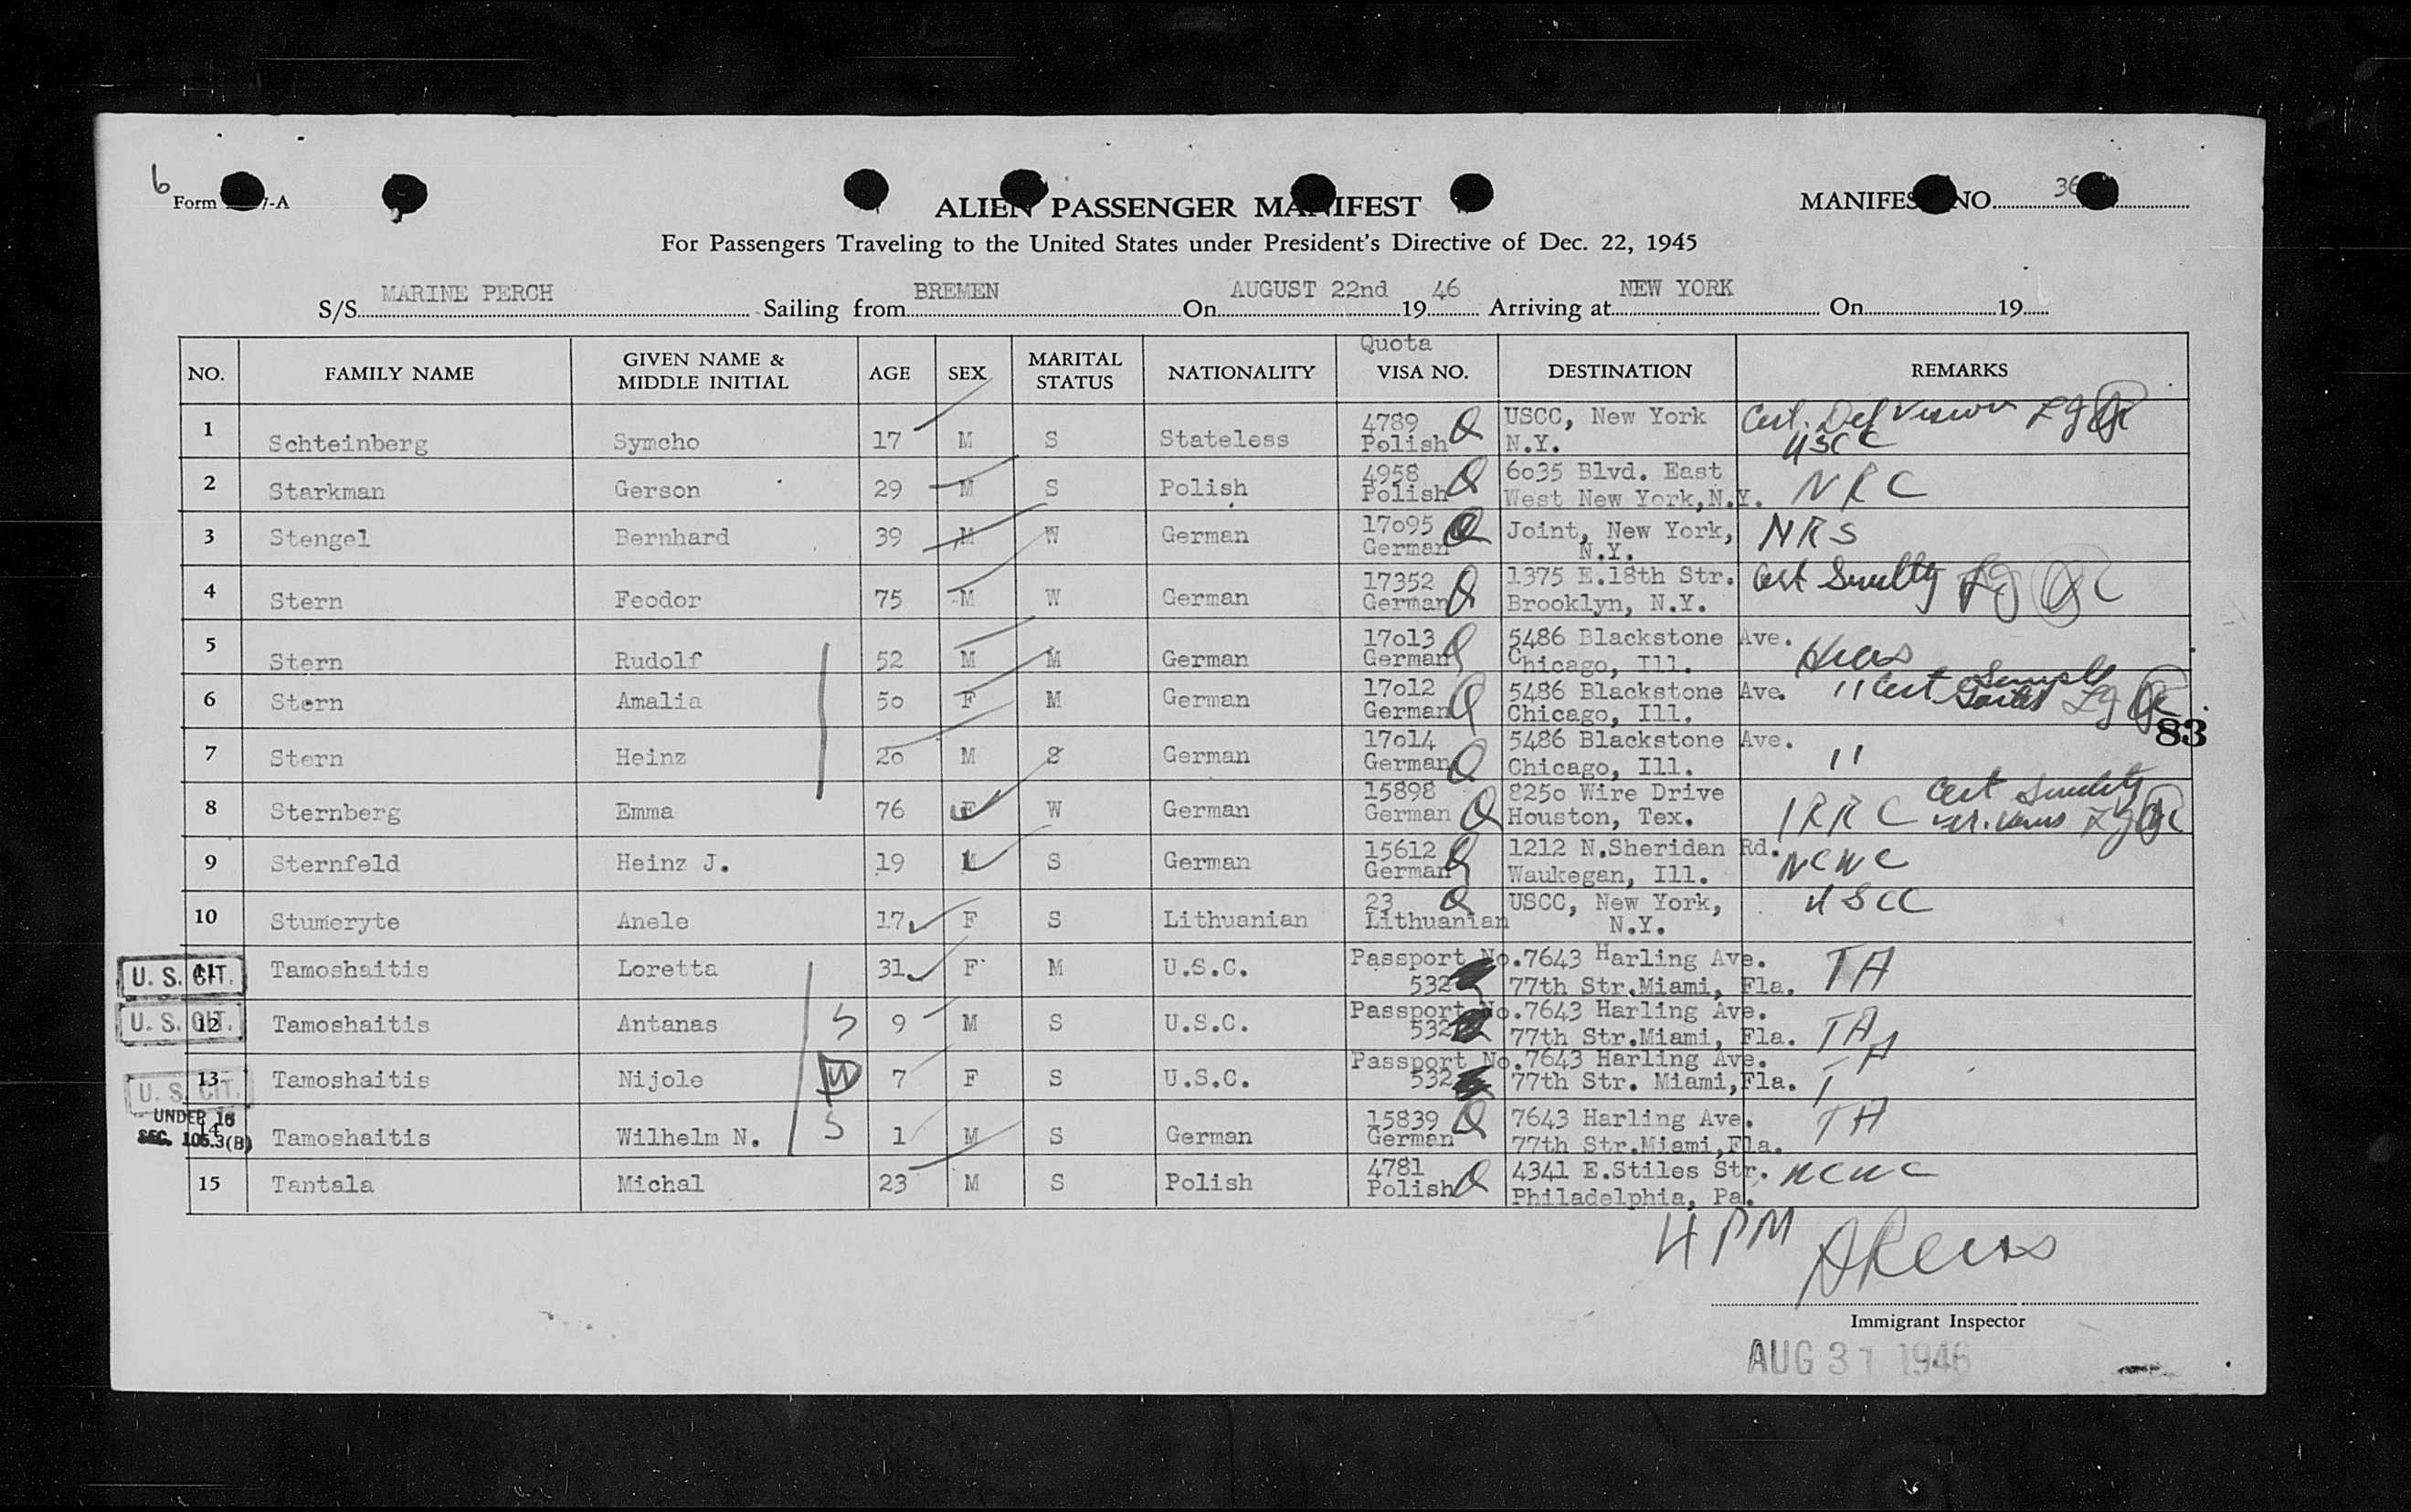 6
Form 7-A
ALIEN PASSENGER MANIFEST
MANIFEST NO. 36
For Passengers Traveling to the United States under President's Directive of Dec. 22, 1945
S/S MARINE PERCH Sailing from BREMEN On AUGUST 22nd 19 46 Arriving at NEW YORK On 19
NO. FAMILY NAME GIVEN NAME & MIDDLE INITIAL AGE SEX MARITAL STATUS NATIONALITY Quota VISA NO. DESTINATION REMARKS
1 Schteinberg Symcho 17 M S Stateless 4789 Polish Q USCC, New York N.Y. Cert. Def Vision USCC
2 Starkman Gerson 29 M S Polish 4958 Polish Q 6035 Blvd. East West New York,N.Y. NRC
3 Stengel Bernhard 39 M W German 17095 German Q Joint, New York, N.Y. NRS
4 Stern Feodor 75 M W German 17352 German Q 1375 E.18th Str. Brooklyn, N.Y. Cert Senility
5 Stern Rudolf 52 M M German 17013 German Q 5486 Blackstone Ave. Chicago, Ill. Hias
6 Stern Amalia 50 F M German 17012 German Q 5486 Blackstone Ave. Chicago, Ill. " Cert Simple
83
7 Stern Heinz 20 M S German 17014 German Q 5486 Blackstone Ave. Chicago, Ill. "
8 Sternberg Emma 76 F W German 15898 German Q 8250 Wire Drive Houston, Tex. IRRC Cert Senility
9 Sternfeld Heinz J. 19 M S German 15612 German Q 1212 N.Sheridan Rd. Waukegan, Ill. NCWC
10 Stumeryte Anele 17 F S Lithuanian 23 Lithuanian Q USCC, New York, N.Y. USCC
U. S. CIT. 11 Tamoshaitis Loretta 31 F M U.S.C. Passport No. 532 7643 Harling Ave. 77th Str.Miami, Fla. TA
U. S. CIT. 12 Tamoshaitis Antanas S 9 M S U.S.C. Passport No. 532 7643 Harling Ave. 77th Str.Miami, Fla. TA
U. S. CIT. 13 Tamoshaitis Nijole W 7 F S U.S.C. Passport No. 532 7643 Harling Ave. 77th Str. Miami,Fla. TA
UNDER 16 SEC. 105.3(B) 14 Tamoshaitis Wilhelm N. S 1 M S German 15839 German Q 7643 Harling Ave. 77th Str.Miami,Fla. TA
15 Tantala Michal 23 M S Polish 4781 Polish Q 4341 E.Stiles Str. Philadelphia, Pa. NCWC
4 PM
Immigrant Inspector
AUG 31 1946